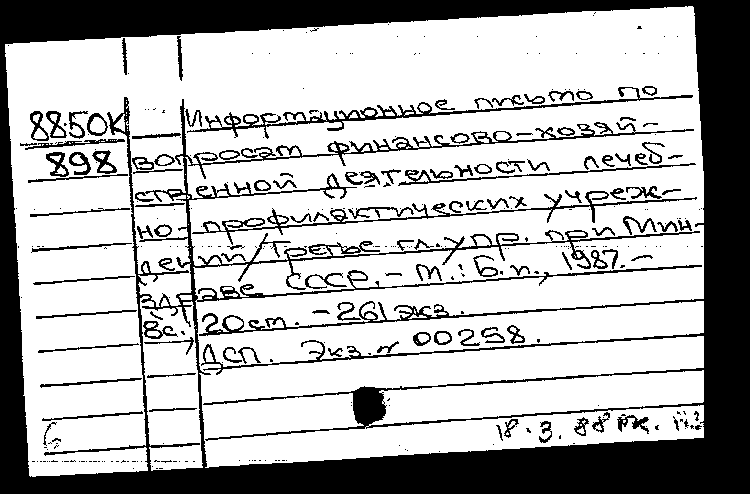 8850К Информационное письмо по
898 вопросам финансово-хозяй-
ственной деятельности лечеб-
но-профилактических учреж-
дений / Третье гл. упр. при Мин-
здраве СССР. – М.: Б.и., 1987. –
8с.; 20см. – 261 экз.
ДСП. Экз. № 00258.
6 18.3.88